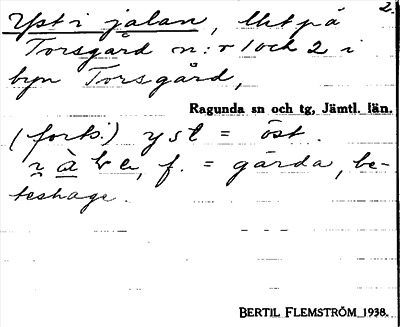 2.
Yst i jalan, lht på
Torsgård n:r 1 och 2 i
byn Torsgård,
Ragunda sn och tg, Jämtl. län.
(forts.) yst = öst.
f. = gärda, be-
teshage.
BERTIL FLEMSTRÖM 1938.